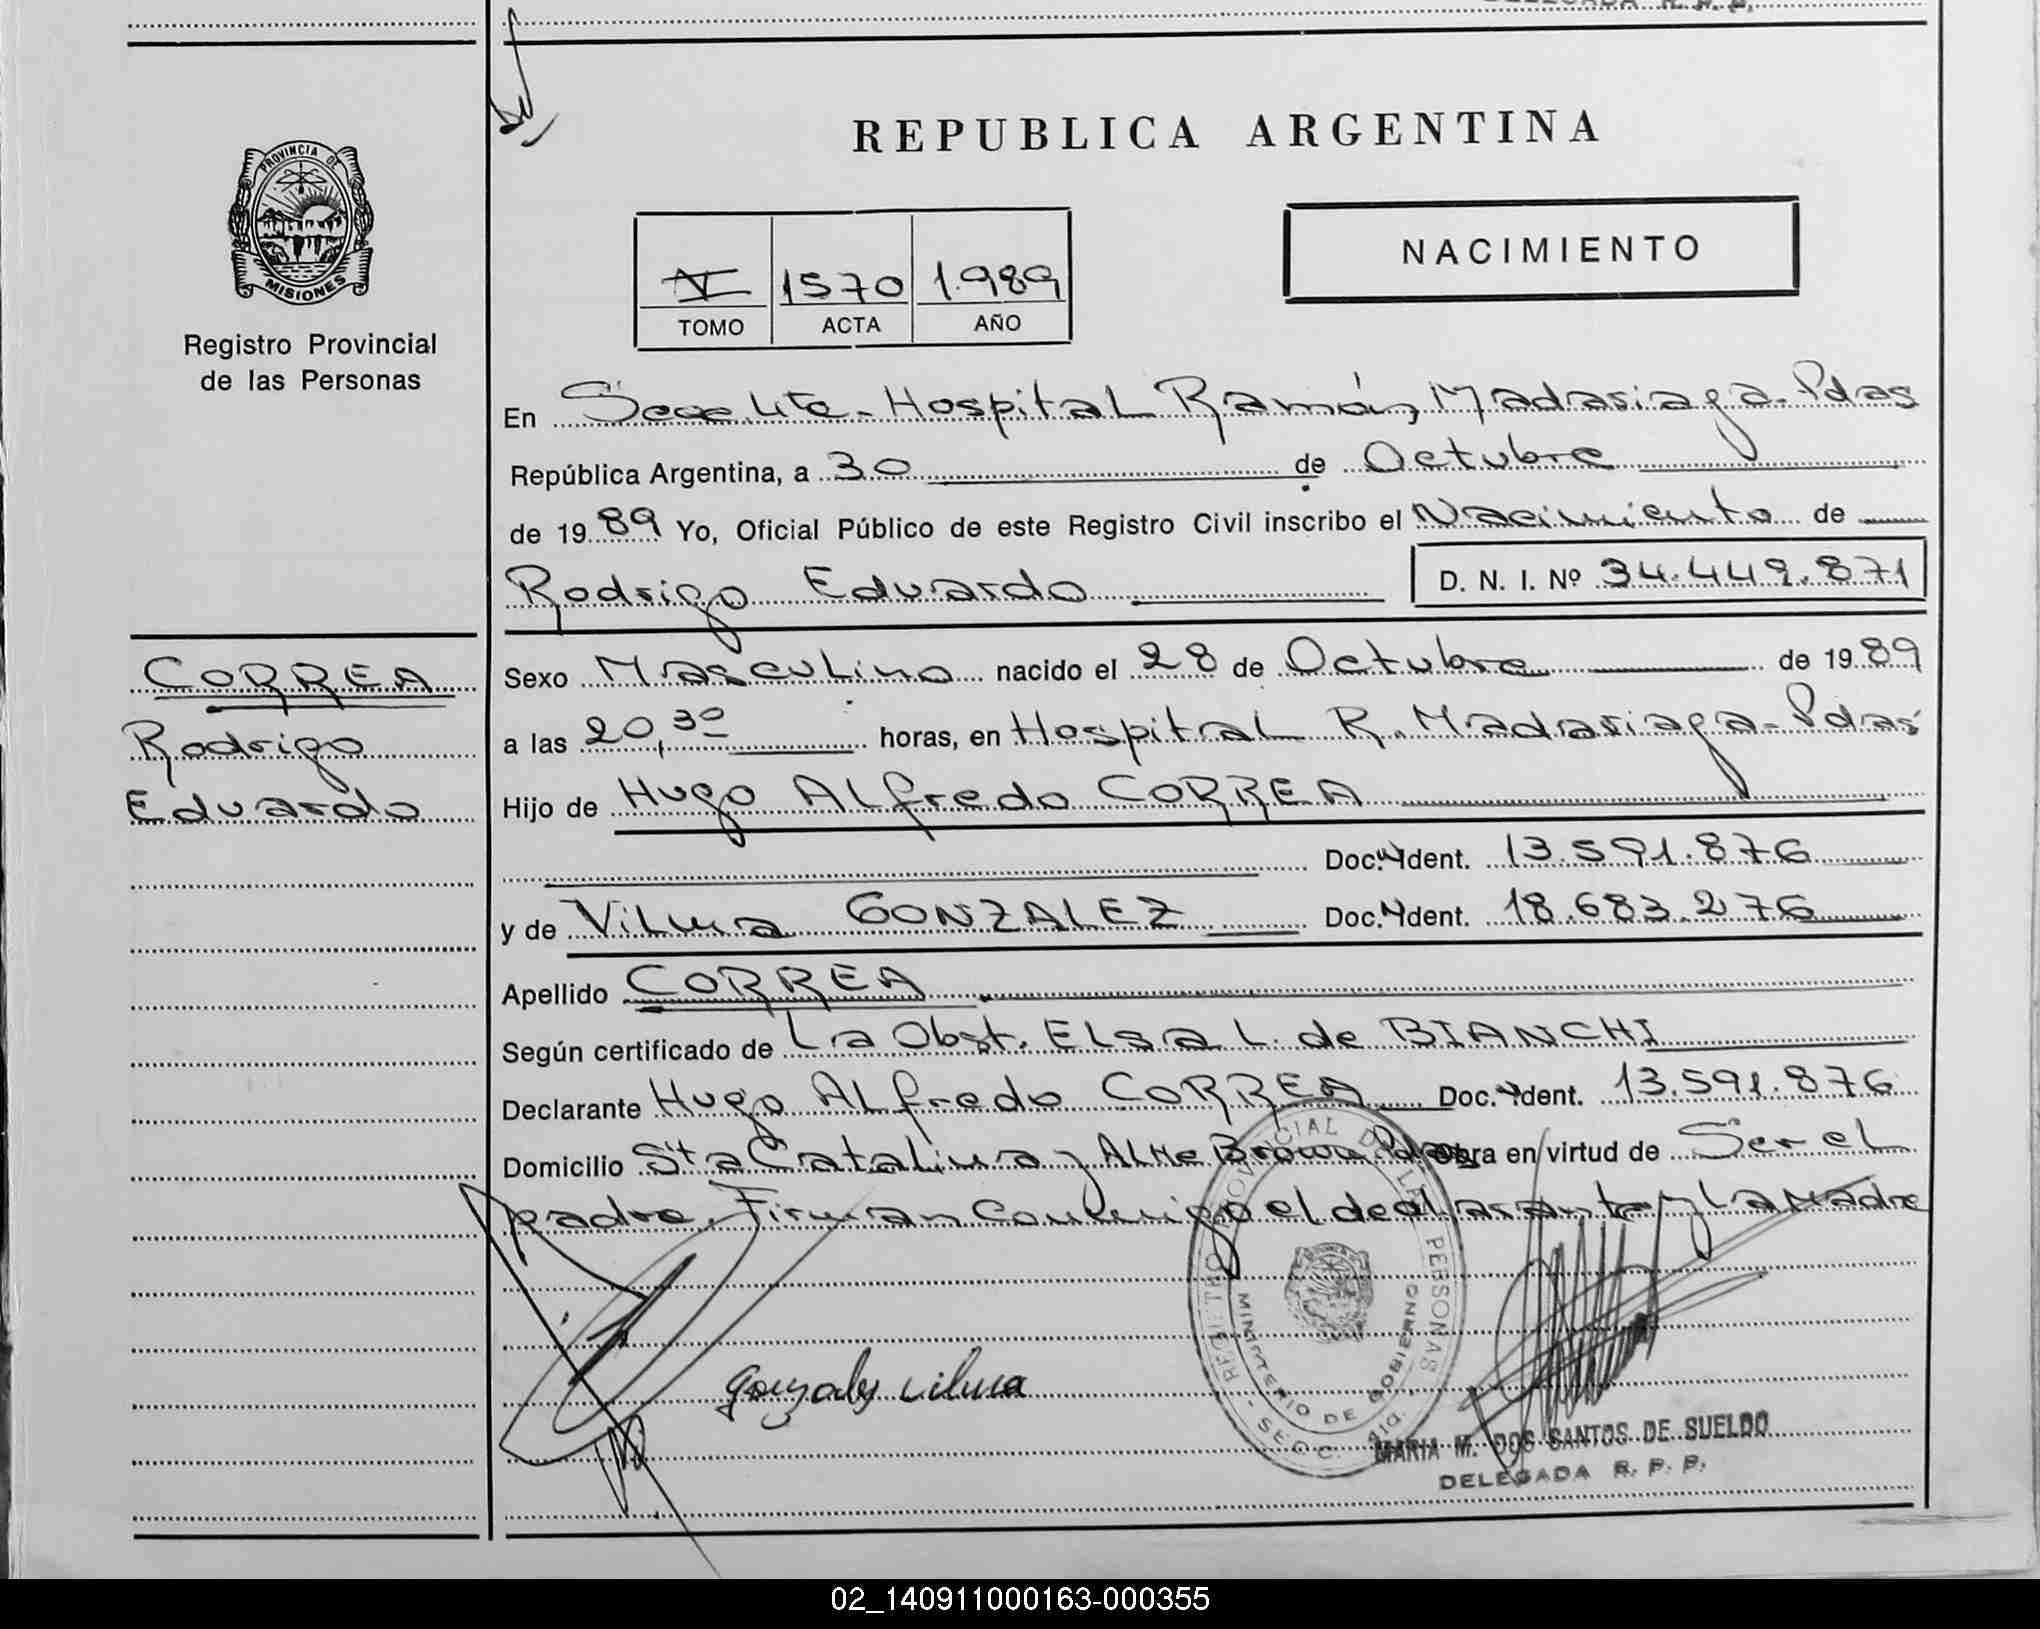 REPUBLICA ARGENTINA
PROVINCIA DE
MISIONES
Registro Provincial
de las Personas
NACIMIENTO
V 1570 1.989
TOMO ACTA AÑO
En Secc 4ta - Hospital Ramón Madariaga - Pdas
República Argentina, a 30 de Octubre
de 1989 Yo, Oficial Público de este Registro Civil inscribo el Nacimiento de
Rodrigo Eduardo D. N. I. Nº 34.449.871
CORREA
Rodrigo
Eduardo
Sexo Masculino nacido el 28 de Octubre de 1989
a las 20,30 horas, en Hospital R. Madariaga - Pdas
Hijo de Hugo Alfredo CORREA
Doc. Ident. 13.591.876
y de Vilma GONZALEZ Doc. Ident. 18.683.276
Apellido CORREA
Según certificado de La Obst. Elsa L. de BIANCHI
Declarante Hugo Alfredo CORREA Doc. Ident. 13.591.876
Domicilio Sta Catalina y Alte Brown Pdas Obra en virtud de Ser el
padre. Firman conmigo el declarante y la Madre
REGISTRO PROVINCIAL DE LAS PERSONAS
MINISTERIO DE GOBIERNO
Gonzalez Vilma
MARIA M. DOS SANTOS DE SUELDO
DELEGADA R. P. P.
02_140911000163-000355